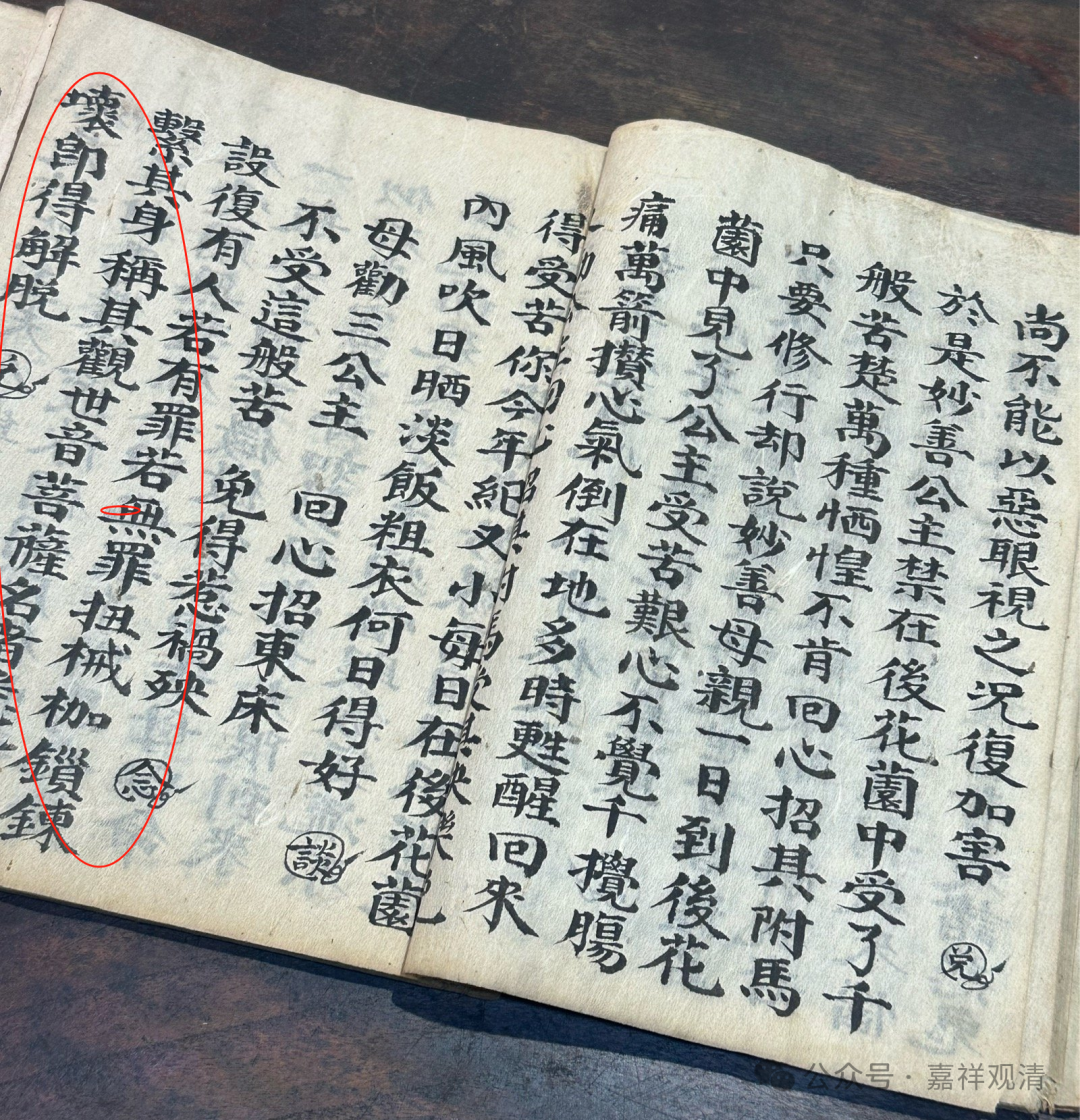 尚不能以惡眼視之況復加害 兌
於是妙善公主禁在後花薗中受了千
般苦楚萬種恓惶不肯回心招其附馬
只要修行却說妙善母親一日到後花
薗中見了公主受苦艱心不覺千攪腸
痛萬箭攢心氣倒在地多時甦醒回來
得受苦你今年紀又小每日在後花薗
內風吹日晒淡飯粗衣何日得好 談
母勸三公主 回心招東床
不受這般苦 免得惹禍殃 念
設復有人若有罪若無罪扭械枷鎖鍊
繫其身稱其觀世音菩薩名者
壞即得解脫
公众号·嘉祥观清